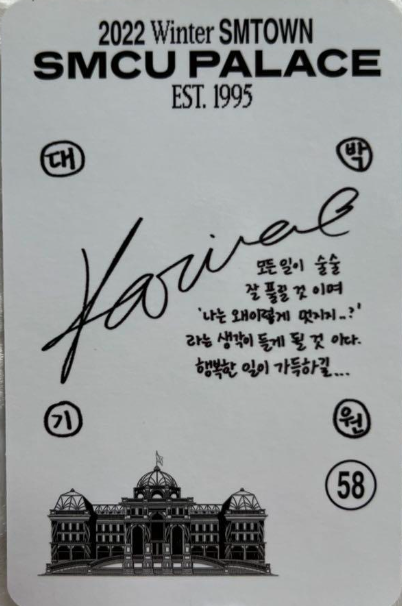 2022 Winter SMTOWN
SMCU PALACE
EST. 1995
대 박
Karina
모든 일이 술술
잘 풀릴 것 이며
'나는 왜이렇게 멋지지..?'
라는 생각이 들게 될 것 이다.
행복한 일이 가득하길...
기 원
58